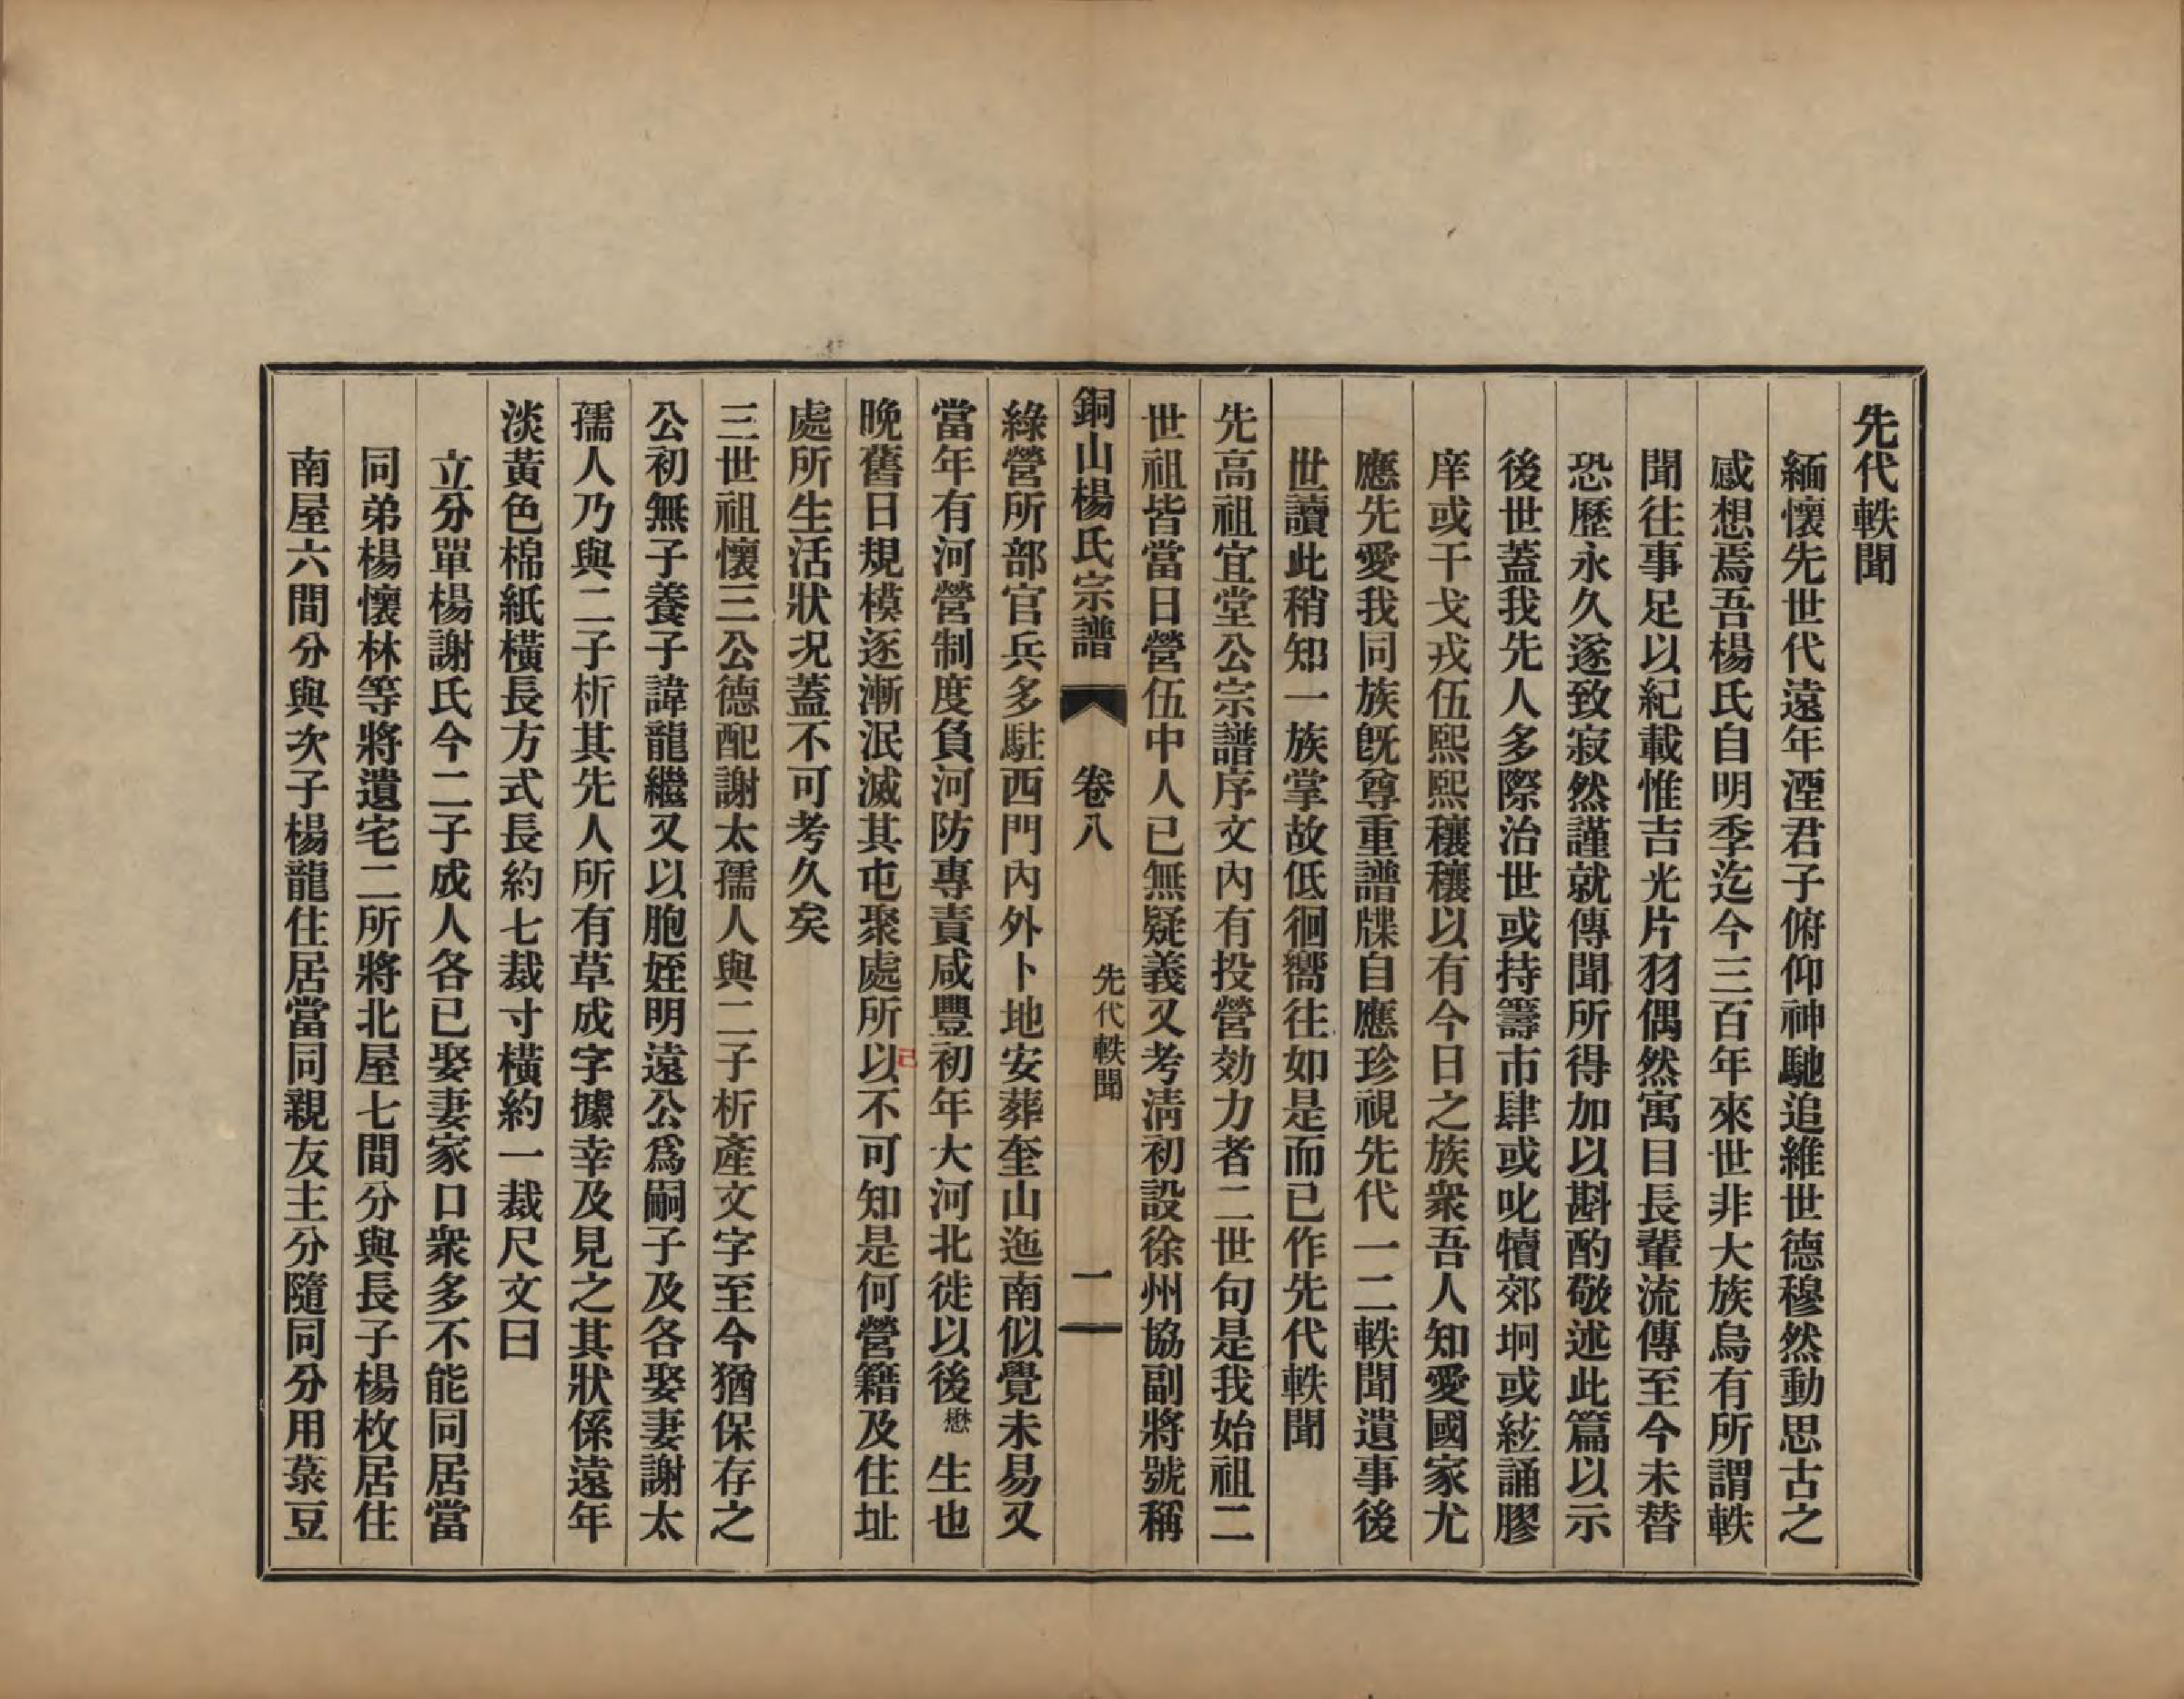 先代軼聞
緬懷先世代遠年湮君子俯仰神馳追維世德穆然動思古之
感想焉吾楊氏自明季迄今三百年來世非大族烏有所謂軼
聞往事足以紀載惟吉光片羽偶然寓目長輩流傳至今未替
恐歷永久遂致寂然謹就傳聞所得加以斟酌敬述此篇以示
後世蓋我先人多際治世或持籌市肆或叱犢郊坰或絃誦膠
庠或干戈戎伍熙熙穰穰以有今日之族衆吾人知愛國家尤
應先愛我同族旣尊重譜牒自應珍視先代一二軼聞遺事後
世讀此稍知一族掌故低徊嚮往如是而已作先代軼聞
先高祖宜堂公宗譜序文內有投營効力者二世句是我始祖二
世祖皆當日營伍中人已無疑義又考淸初設徐州協副將號稱
銅山楊氏宗譜 卷八 先代軼聞 一
綠營所部官兵多駐西門內外卜地安葬奎山迤南似覺未易又
當年有河營制度負河防專責咸豐初年大河北徙以後懋生也
晚舊日規模逐漸泯滅其屯聚處所以不可知是何營籍及住址
己
處所生活狀況蓋不可考久矣
三世祖懷三公德配謝太孺人與二子析產文字至今猶保存之
公初無子養子諱龍繼又以胞姪明遠公爲嗣子及各娶妻謝太
孺人乃與二子析其先人所有草成字據幸及見之其狀係遠年
淡黃色棉紙橫長方式長約七裁寸橫約一裁尺文曰
立分單楊謝氏今二子成人各已娶妻家口衆多不能同居當
同弟楊懷林等將遺宅二所將北屋七間分與長子楊枚居住
南屋六間分與次子楊龍住居當同親友主分隨同分用菉豆